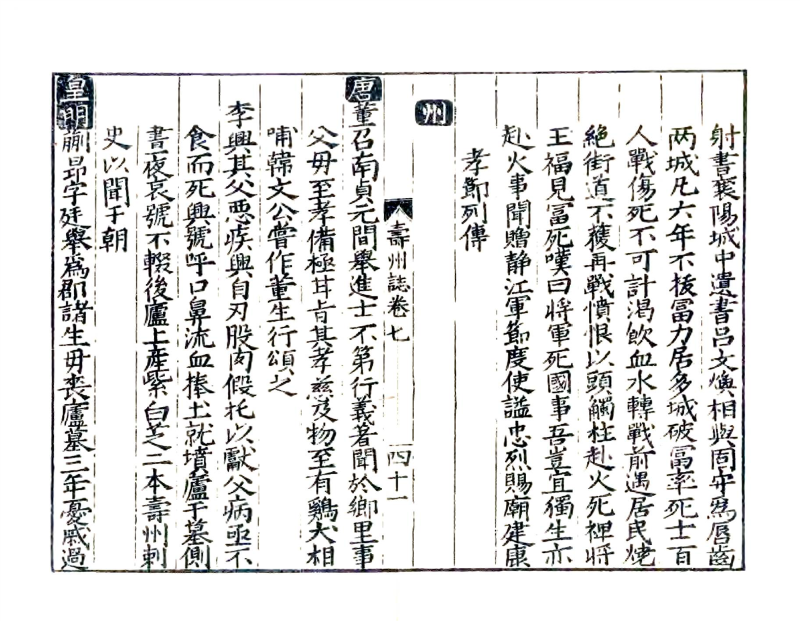 射書襄陽城中遺書呂文煥相與固守爲唇齒
两城凡六年不拔冨力居多城破冨率死士百
人戰傷死不可計渴飲血水轉戰前遇居民燒
絶街道不獲再戰憤恨以頭觸柱赴火死裨將
王福見冨死嘆曰將軍死國事吾豈宜獨生亦
赴火事聞贈靜江軍節度使謚忠烈賜廟建康
孝鄭列傳
州
壽州誌卷七
四十一
唐董召南貞元間舉進士不第行義著聞於鄉里事
父母至孝備極甘旨其孝慈及物至有鷄犬相
哺韓文公嘗作董生行頌之
李興其父惡疾興自刃股肉假托以獻父病亟不
食而死興號呼口鼻流血捧土就墳廬于墓側
晝夜哀號不輟後廬上產紫白芝二本壽州刺
史以聞于朝
皇明 昂字廷舉爲郡諸生毋喪廬墓三年憂戚過